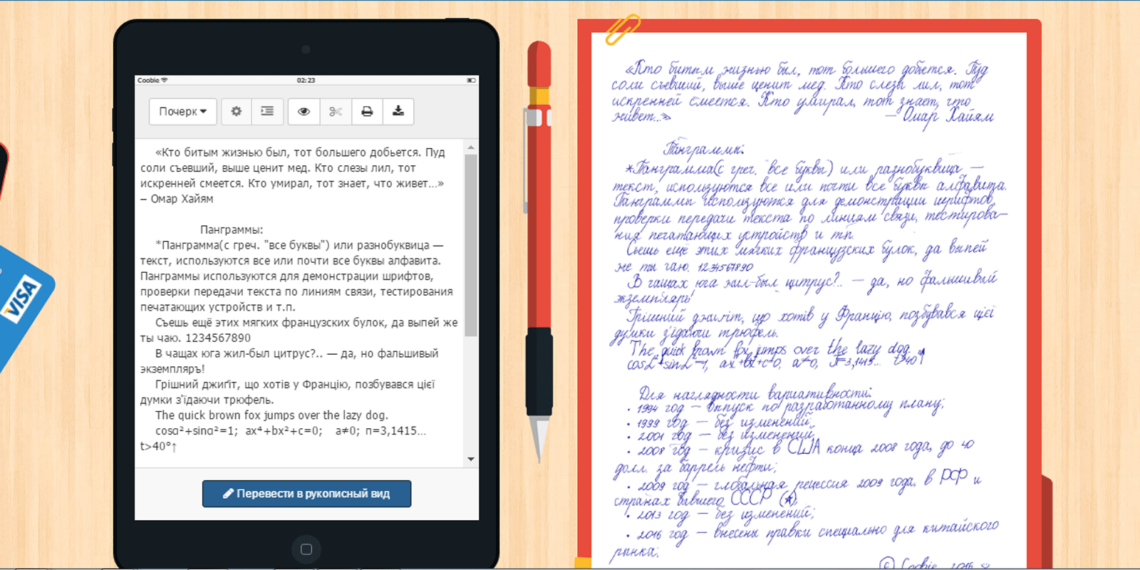 Coobie
02:23
Почерк
«Кто битым жизнью был, тот большего добьется. Пуд
соли съевший, выше ценит мед. Кто слезы лил, тот
искренней смеется. Кто умирал, тот знает, что живет...»
– Омар Хайям
Панграммы:
*Панграмма(с греч. "все буквы") или разнобуквица —
текст, используются все или почти все буквы алфавита.
Панграммы используются для демонстрации шрифтов,
проверки передачи текста по линиям связи, тестирования
печатающих устройств и т.п.
Съешь ещё этих мягких французских булок, да выпей же
ты чаю. 1234567890
В чащах юга жил-был цитрус?.. — да, но фальшивый
экземпляръ!
Грішний джиґіт, що хотів у Францію, позбувався цієї
думки з'їдаючи трюфель.
The quick brown fox jumps over the lazy dog.
cosα²+sinα²=1; ax⁴+bx²+c=0; a≠0; π=3,1415...
t>40°↑
Перевести в рукописный вид
VISA
«Кто битым жизнью был, тот большего добьется. Пуд
соли съевший, выше ценит мед. Кто слезы лил, тот
искренней смеется. Кто умирал, тот знает, что
живет...»
— Омар Хайям
Панграммы:
*Панграмма(с греч. "все буквы") или разнобуквица —
текст, используются все или почти все буквы алфавита.
Панграммы используются для демонстрации шрифтов,
проверки передачи текста по линиям связи, тестирова-
ния печатающих устройств и т.п.
Съешь ещё этих мягких французских булок, да выпей
же ты чаю. 1234567890
В чащах юга жил-был цитрус?.. — да, но фальшивый
экземпляръ!
Грішний джиґіт, що хотів у Францію, позбувався цієї
думки з'їдаючи трюфель.
The quick brown fox jumps over the lazy dog.
cosα²+sinα²=1; ax⁴+bx²+c=0; a≠0; π=3,1415... t>40°↑
Для наглядности вариативности:
• 1994 год — выпуск по разработанному плану;
• 1999 год — без изменений;
• 2001 год — без изменений;
• 2008 год — кризис в США конца 2008 года, до 40
долл. за баррель нефти;
• 2009 год — глобальная рецессия 2009 года, в РФ и
странах бывшего СССР (★);
• 2013 год — без изменений;
• 2016 год — внесены правки специально для китайского
рынка;
© Coobie, 2016